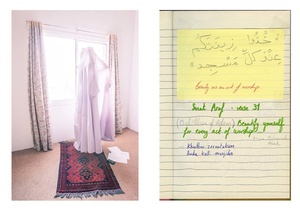 خُذُوا زِينَتَكُمْ
عِنْدَ كُلِّ مَسْجِدٍ
Beauty as an act of worship
Surat Araf - verse 31
Beautify yourself
for every act of worship
Khudhu zeenatakum